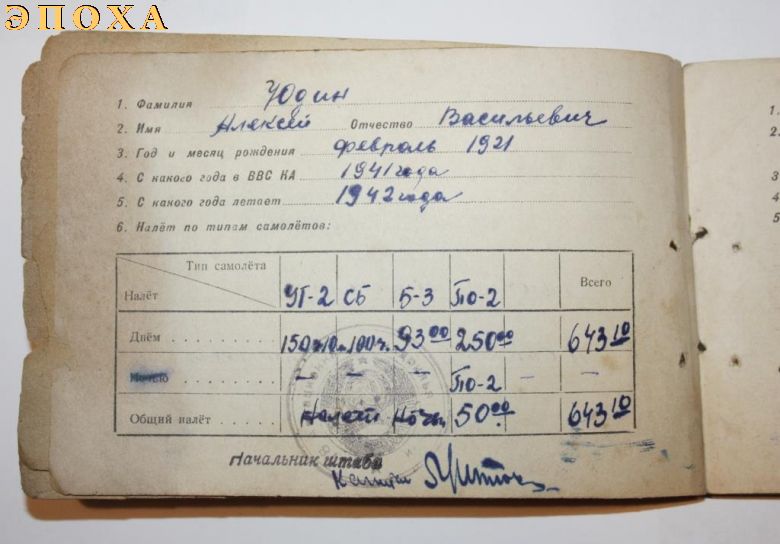 ЭПОХА
1. Фамилия Юдин
2. Имя Алексей Отчество Васильевич
3. Год и месяц рождения февраль 1921
4. С какого года в ВВС КА 1941 года
5. С какого года летает 1942 года
6. Налёт по типам самолётов:
Тип самолёта
Налёт УТ-2 СБ Б-3 ПО-2 Всего
Днём 150 10 100 ч. 93 00 250 00 643 10
Ночью — — — ПО-2 — —
Общий налёт Налёт Ночь 50 00 643 10
Начальник штаба
1.
2.
3
4
5